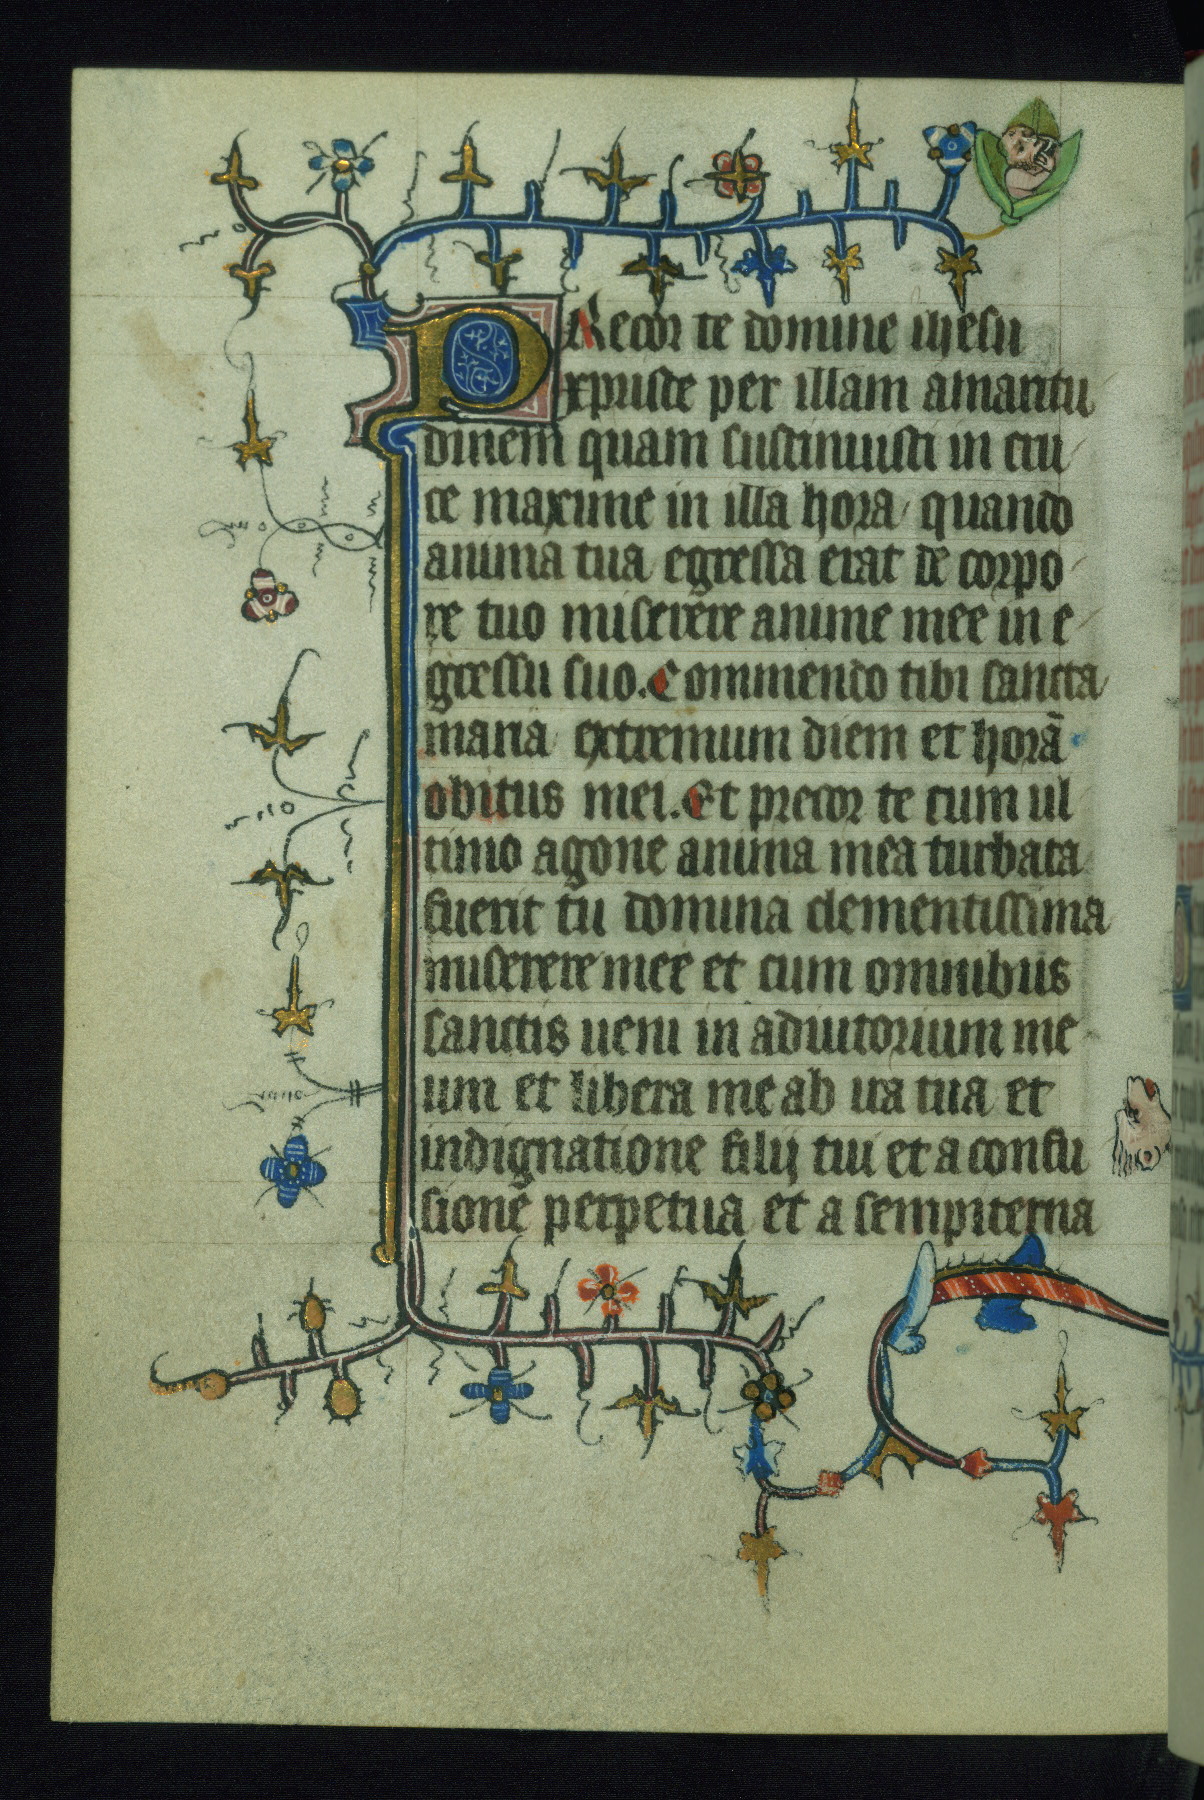 PRecor te domine ihesu
xpriste per illam amaritu
dinem quam sustinuisti in cru
ce maxime in illa hora quando
anima tua egressa erat de corpo
re tuo miserere anime mee in e
gressu suo. Commendo tibi sancta
maria extremum diem et horã
obitus mei. Et precor te cum ul
timo agone anima mea turbata
fuerit tu domina clementissima
miserere mee et cum omnibus
sanctis ueni in adiutorium me
um et libera me ab ira tua et
indignatione filij tui et a confu
sione perpetua et a sempiterna